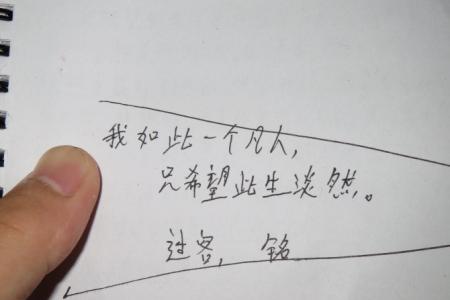 我如此一个凡人，
只希望此生淡然。
过客，铭